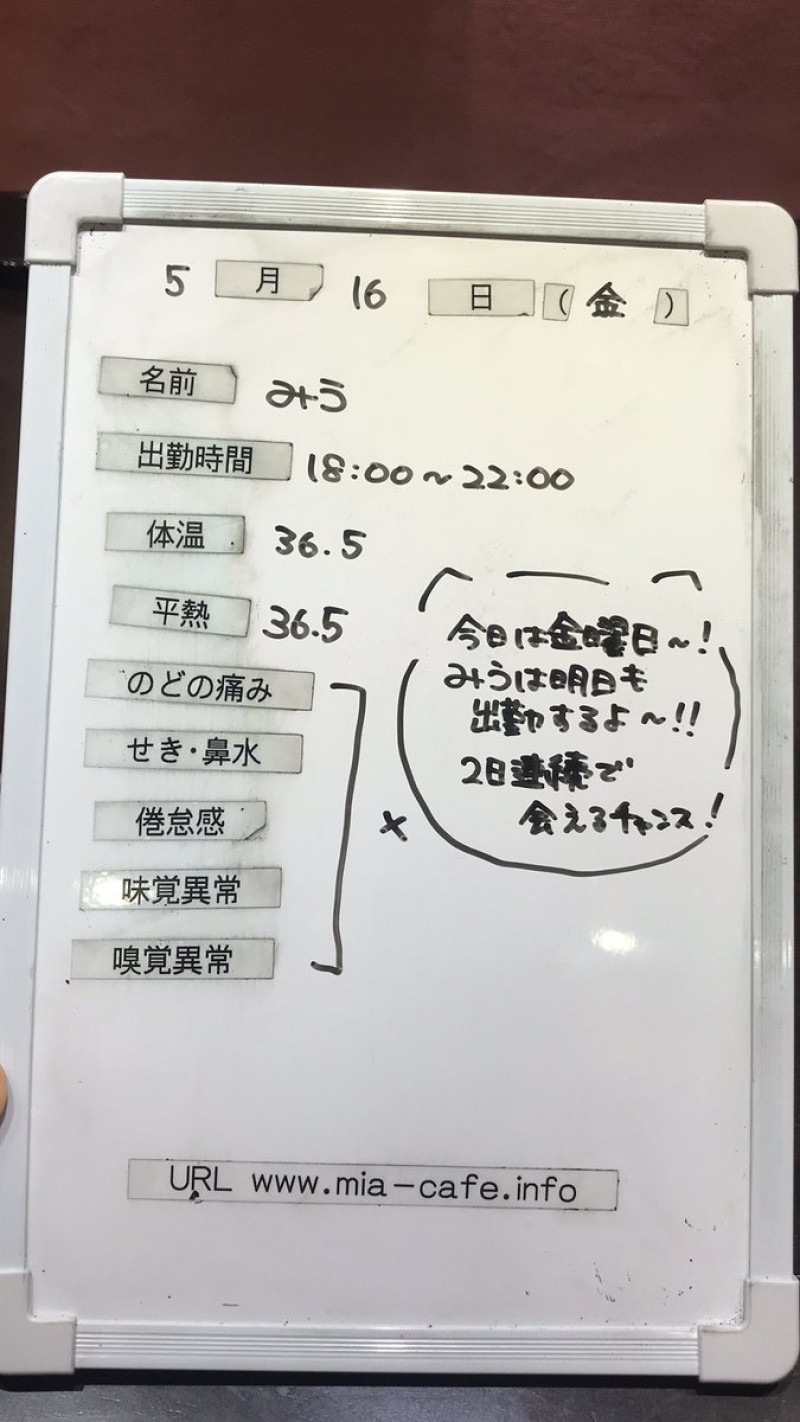 5月16日(金)
名前 みう
出勤時間 18:00~22:00
体温 36.5
平熱 36.5
のどの痛み
せき・鼻水
倦怠感
味覚異常
嗅覚異常
×
今日は金曜日~!
みうは明日も
出勤するよ~!!
2日連続で
会えるチャンス!
URL www.mia-cafe.info